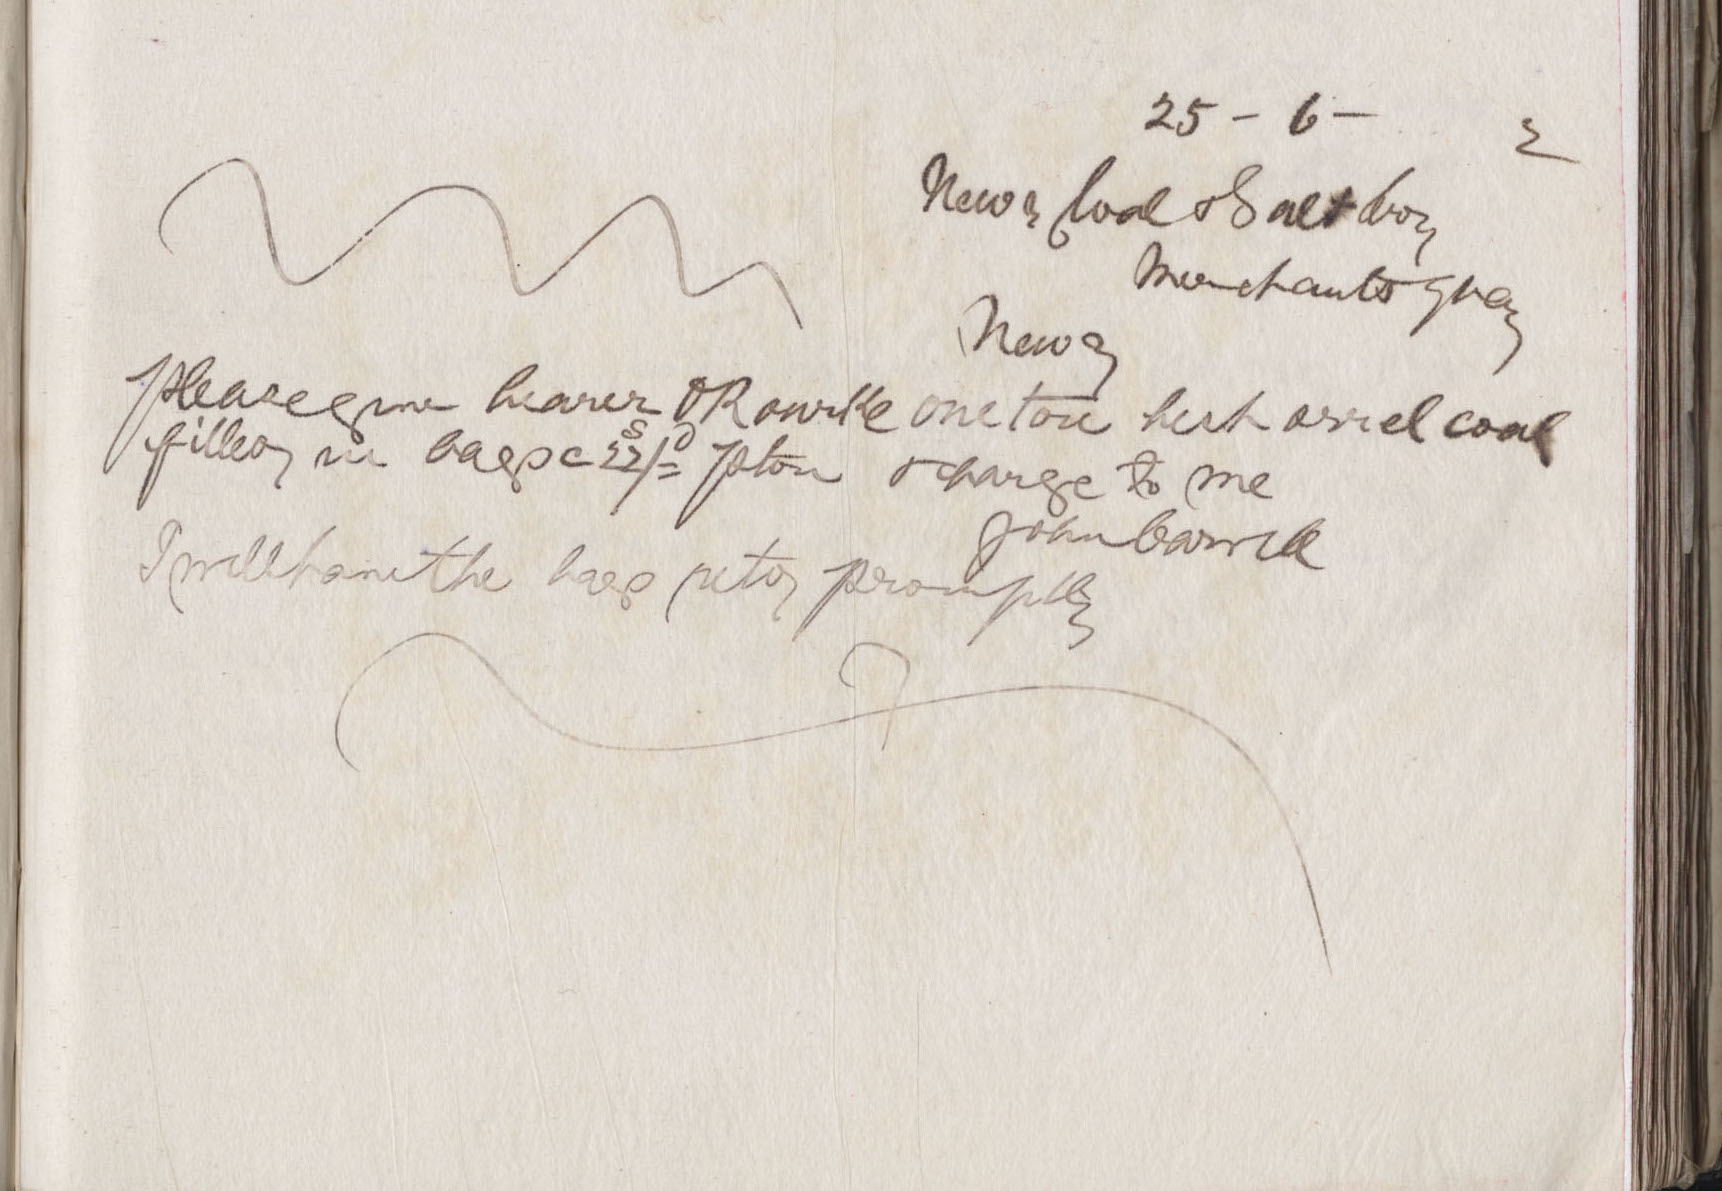 25 - 6 - 2
Newry Coal & Salt Coy
Merchants Quay
Newry
Please give bearer O Rourke one ton best orrel coal
filled in bags @ 22s/=D p ton & charge to me
John
I will have the bags retd promptly